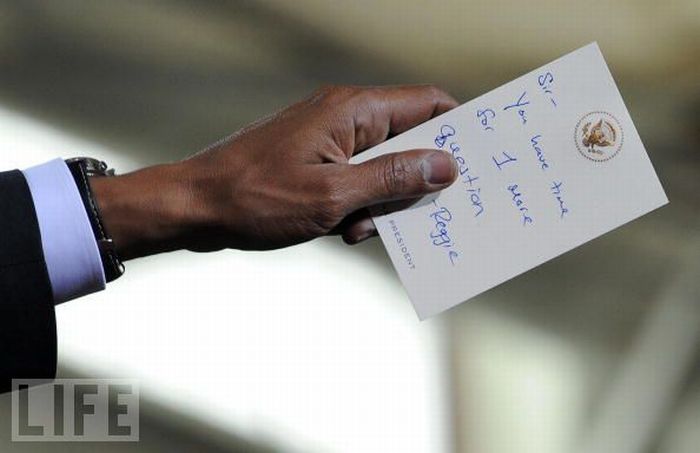 Sir-
You have time
for 1 more
Question
-Reggie
PRESIDENT
LIFE